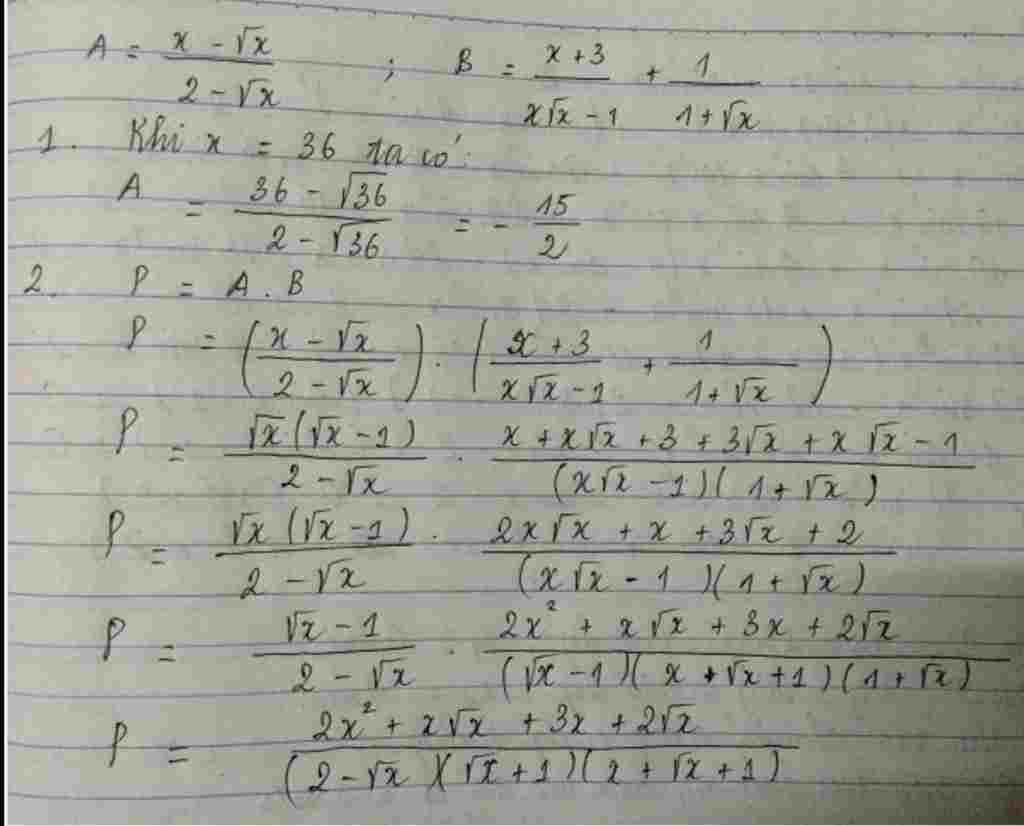 A = (x - √x)/(2 - √x) ; B = (x + 3)/(x√x - 1) + 1/(1 + √x)
1. Khi x = 36 ta có:
A = (36 - √36)/(2 - √36) = - 15/2
2. P = A . B
P = ((x - √x)/(2 - √x)) . ((x + 3)/(x√x - 1) + 1/(1 + √x))
P = (√x(√x - 1))/(2 - √x) . (x + x√x + 3 + 3√x + x√x - 1)/((x√x - 1)(1 + √x))
P = (√x(√x - 1))/(2 - √x) . (2x√x + x + 3√x + 2)/((x√x - 1)(1 + √x))
P = (√x - 1)/(2 - √x) . (2x² + x√x + 3x + 2√x)/((√x - 1)(x + √x + 1)(1 + √x))
P = (2x² + x√x + 3x + 2√x)/((2 - √x)(√x + 1)(x + √x + 1))